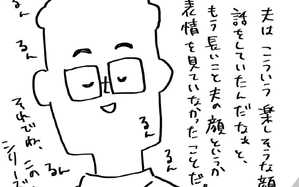 夫はこういう楽しそうな顔で
話をしていたんだなぁと、
もう長いこと夫の顔というか
表情を見ていなかったことだ。
るん
るん
るん
るん
るん
それでね、この
シリーズ